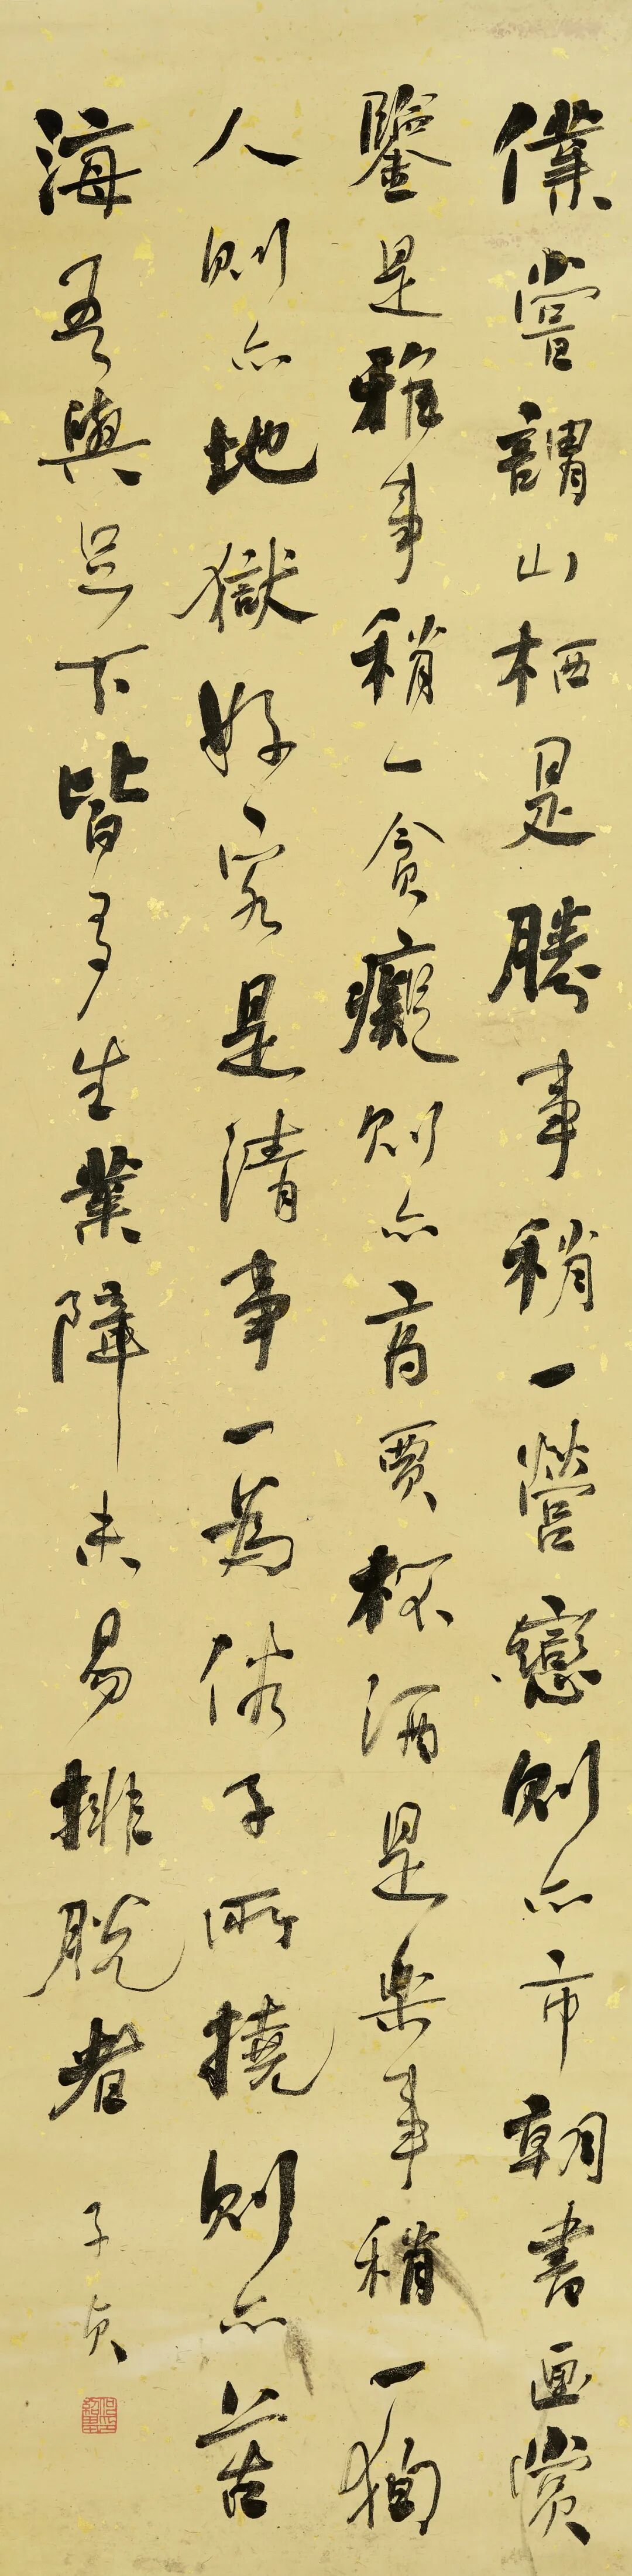 僕嘗謂山栖是勝事稍一營戀則亦市朝書画賞
鑒是雅事稍一貪癡則亦商賈杯酒是樂事稍一狥
人則亦地獄好客是清事一為俗子所撓則亦苦
海吾與足下皆多生業障未易排脫者
子貞